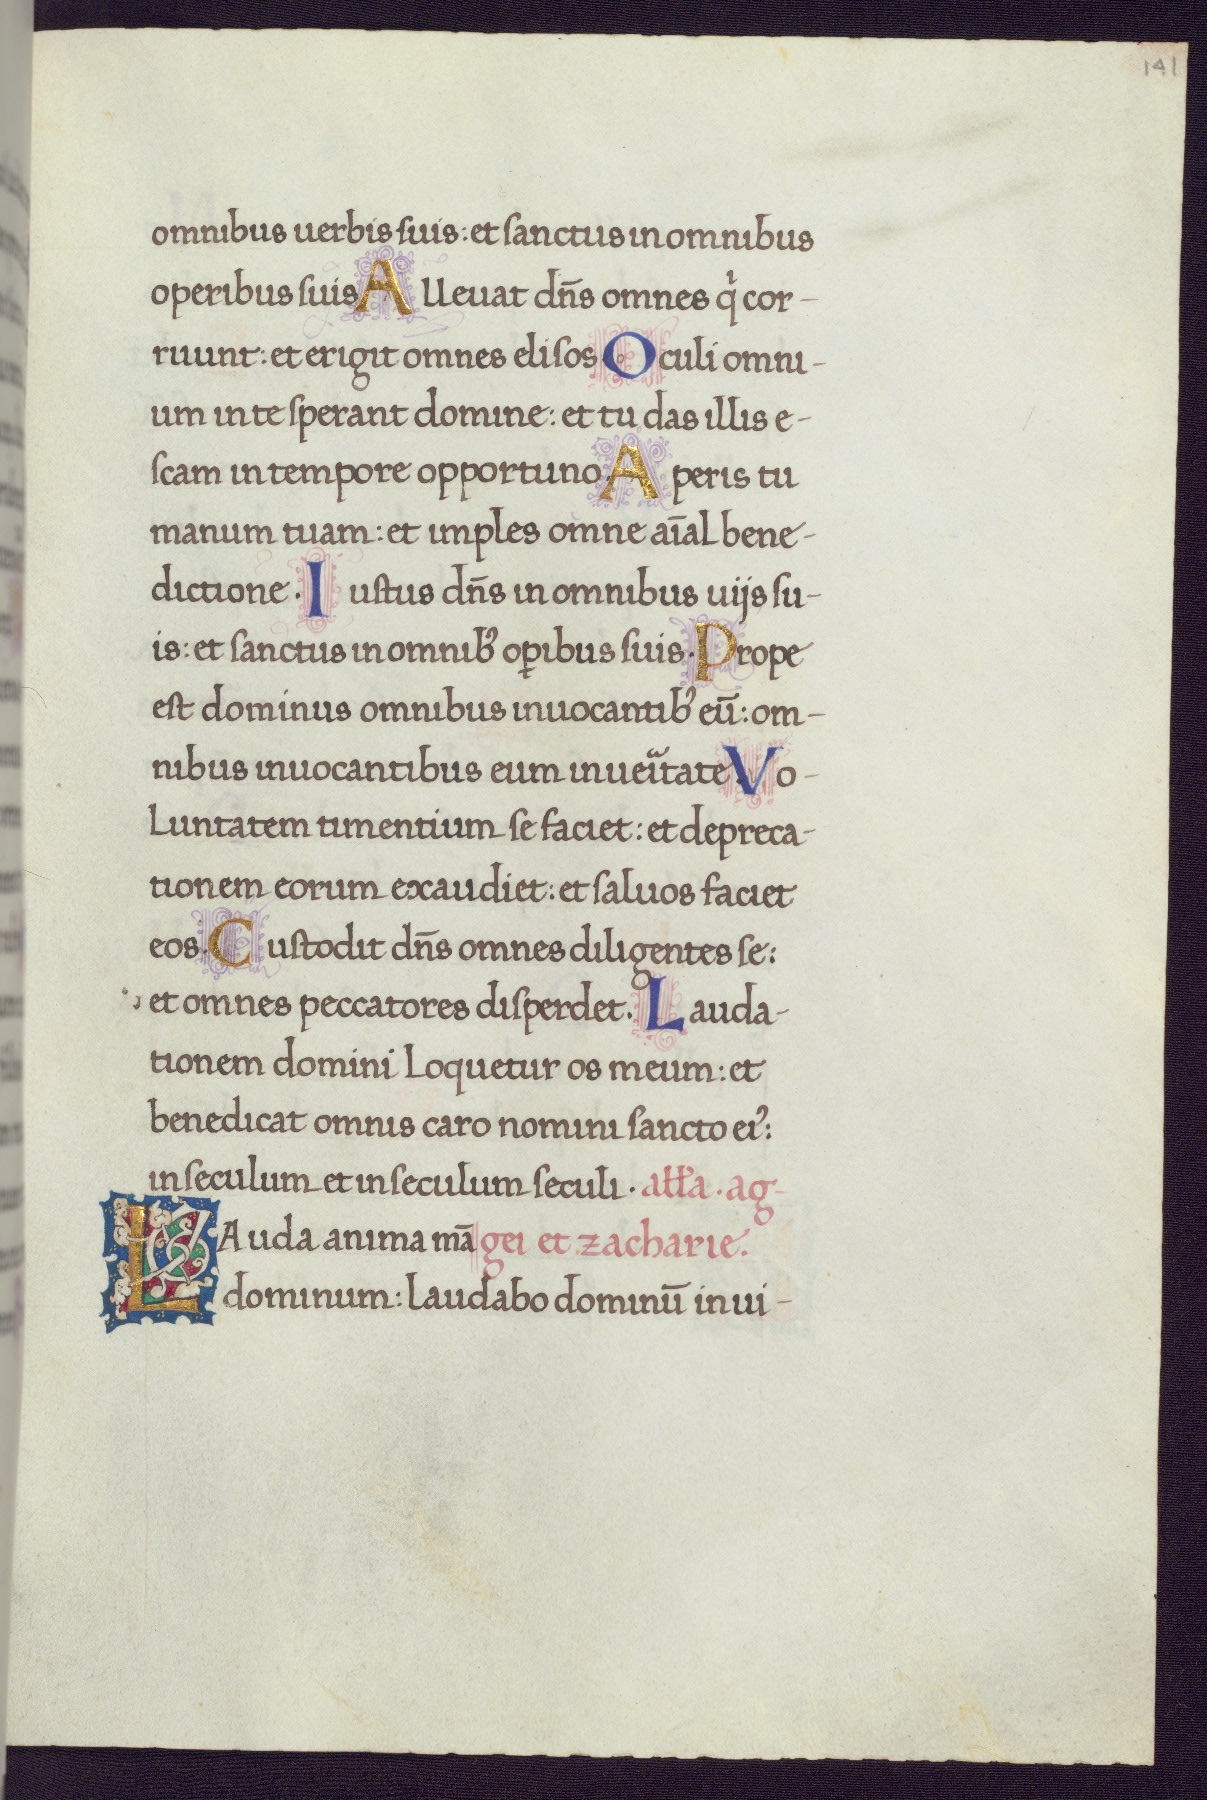 141
omnibus uerbis suis: et sanctus in omnibus
operibus suis Alleuat dn̄s omnes qⁱ cor-
ruunt: et erigit omnes elisos Oculi omni-
um in te sperant domine: et tu das illis e-
scam in tempore opportuno Aperis tu
manum tuam: et imples omne aīal bene-
dictione. Iustus dn̄s in omnibus uijs su-
is: et sanctus in omnibꝰ oꝑibus suis. Prope
est dominus omnibus inuocantibꝰ eū: om-
nibus inuocantibus eum in ueĩtate. Vo-
luntatem timentium se faciet: et depreca-
tionem eorum exaudiet: et saluos faciet
eos. Custodit dn̄s omnes diligentes se:
et omnes peccatores disperdet. Lauda-
tionem domini loquetur os meum: et
benedicat omnis caro nomini sancto eiꝰ:
in seculum et in seculum seculi. aƚƚa. ag-
LAuda anima mā gei et zacharie.
dominum: laudabo dominū in ui-